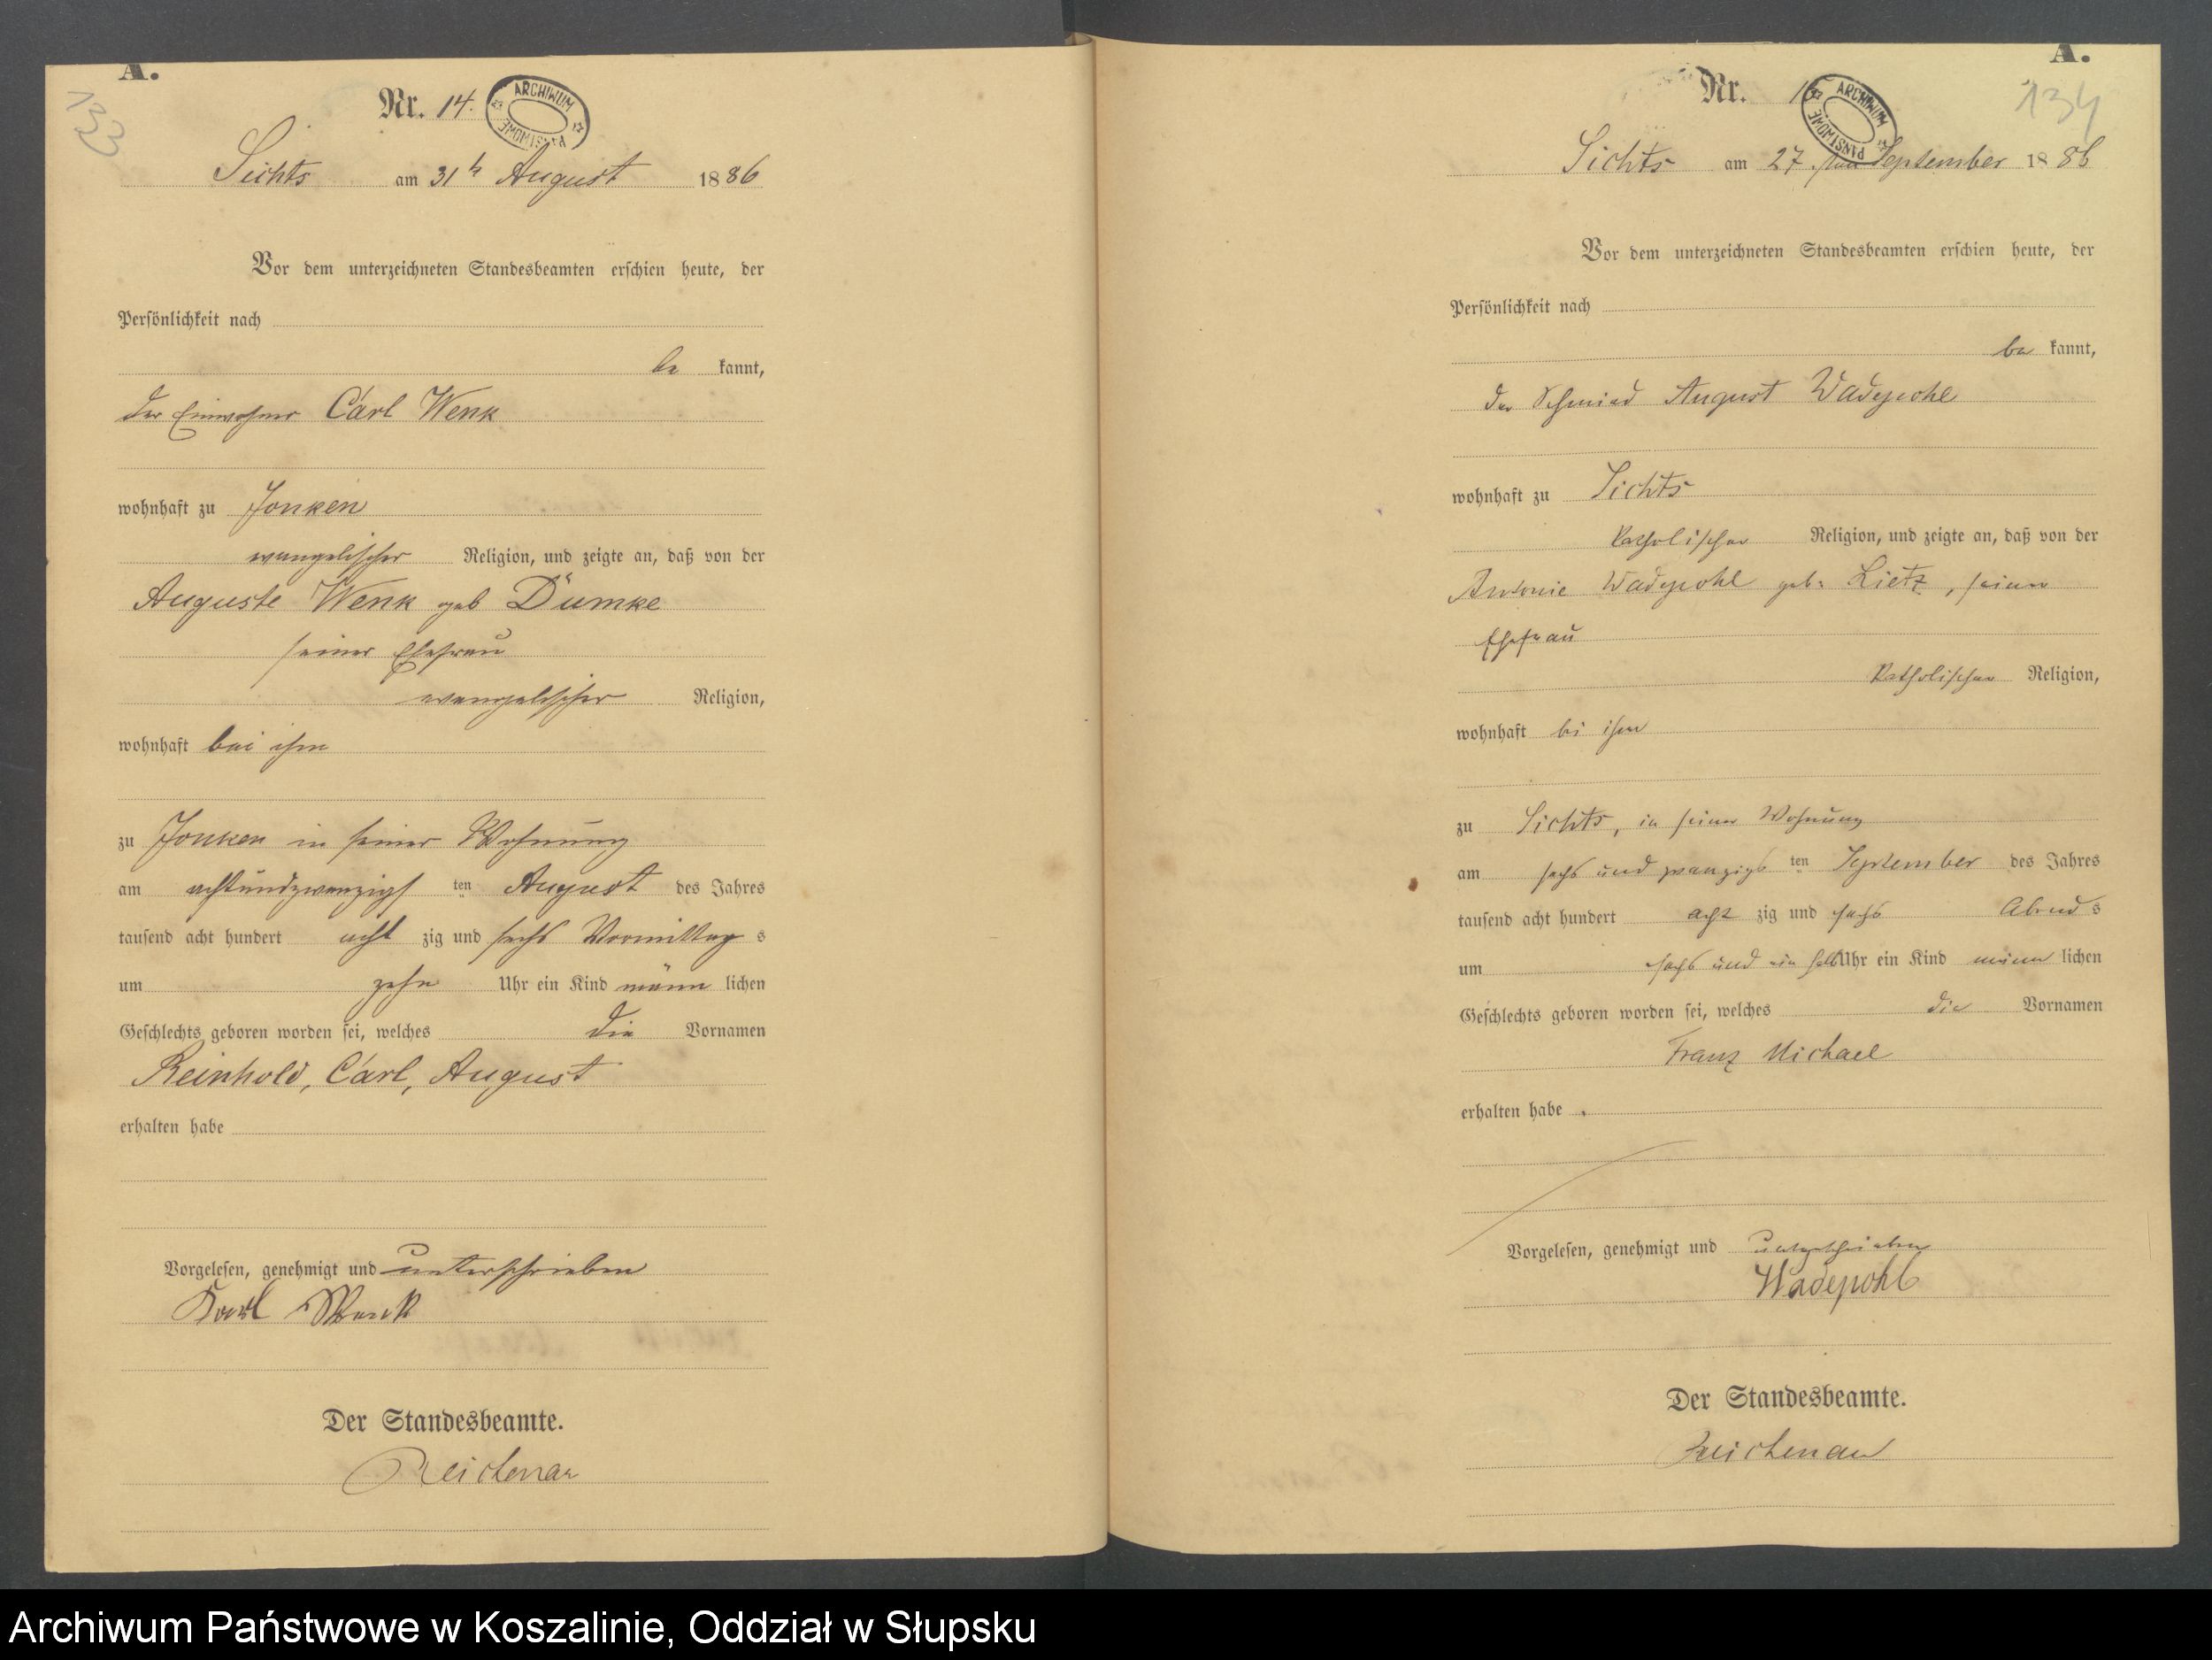 A.
133
Nr. 14.
ARCHIWUM PAŃSTWOWE
Sichts am 31t August 1886
Vor dem unterzeichneten Standesbeamten erschien heute, der
Persönlichkeit nach
be kannt,
der Einwohner Carl Wenk
wohnhaft zu Jonken
evangelischer Religion, und zeigte an, daß von der
Auguste Wenk geb Dümke
seiner Ehefrau
evangelischer Religion,
wohnhaft bei ihm
zu Jonken in seiner Wohnung
am achtundzwanzigs ten August des Jahres
tausend acht hundert acht zig und sechs Vormittag s
um zehn Uhr ein Kind männ lichen
Geschlechts geboren worden sei, welches die Vornamen
Reinhold, Carl, August
erhalten habe
Vorgelesen, genehmigt und unterschrieben
Karl Wenk
Der Standesbeamte.
Reichenau
A.
134
Nr.
ARCHIWUM PAŃSTWOWE
Sichts am 27 ten September 1886
Vor dem unterzeichneten Standesbeamten erschien heute, der
Persönlichkeit nach
be kannt,
der Schmied August Wadepohl
wohnhaft zu Sichts
katholischer Religion, und zeigte an, daß von der
Antonie Wadepohl geb. Lietz, seiner
Ehefrau
katholischer Religion,
wohnhaft bei ihm
zu Sichts, in seiner Wohnung
am sechs und zwanzigs ten September des Jahres
tausend acht hundert acht zig und sechs Abend s
um sechs und ein halb Uhr ein Kind männ lichen
Geschlechts geboren worden sei, welches die Vornamen
Franz Michael
erhalten habe .
Vorgelesen, genehmigt und unterschrieben
Wadepohl
Der Standesbeamte.
Reichenau
Archiwum Państwowe w Koszalinie, Oddział w Słupsku